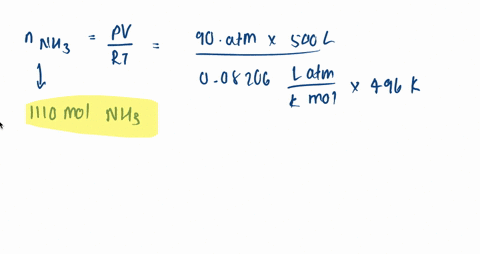 n NH₃ = PV/RT = 90. atm × 500 L / 0.08206 L atm/K mol × 496 K
↓
1110 mol NH₃